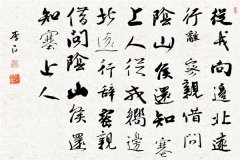 從戎向邊北遠
行辭密親借問
陰山候還知塞
上人從戎嚮邊
北遠行辭密親
借問陰山候還
知塞上人